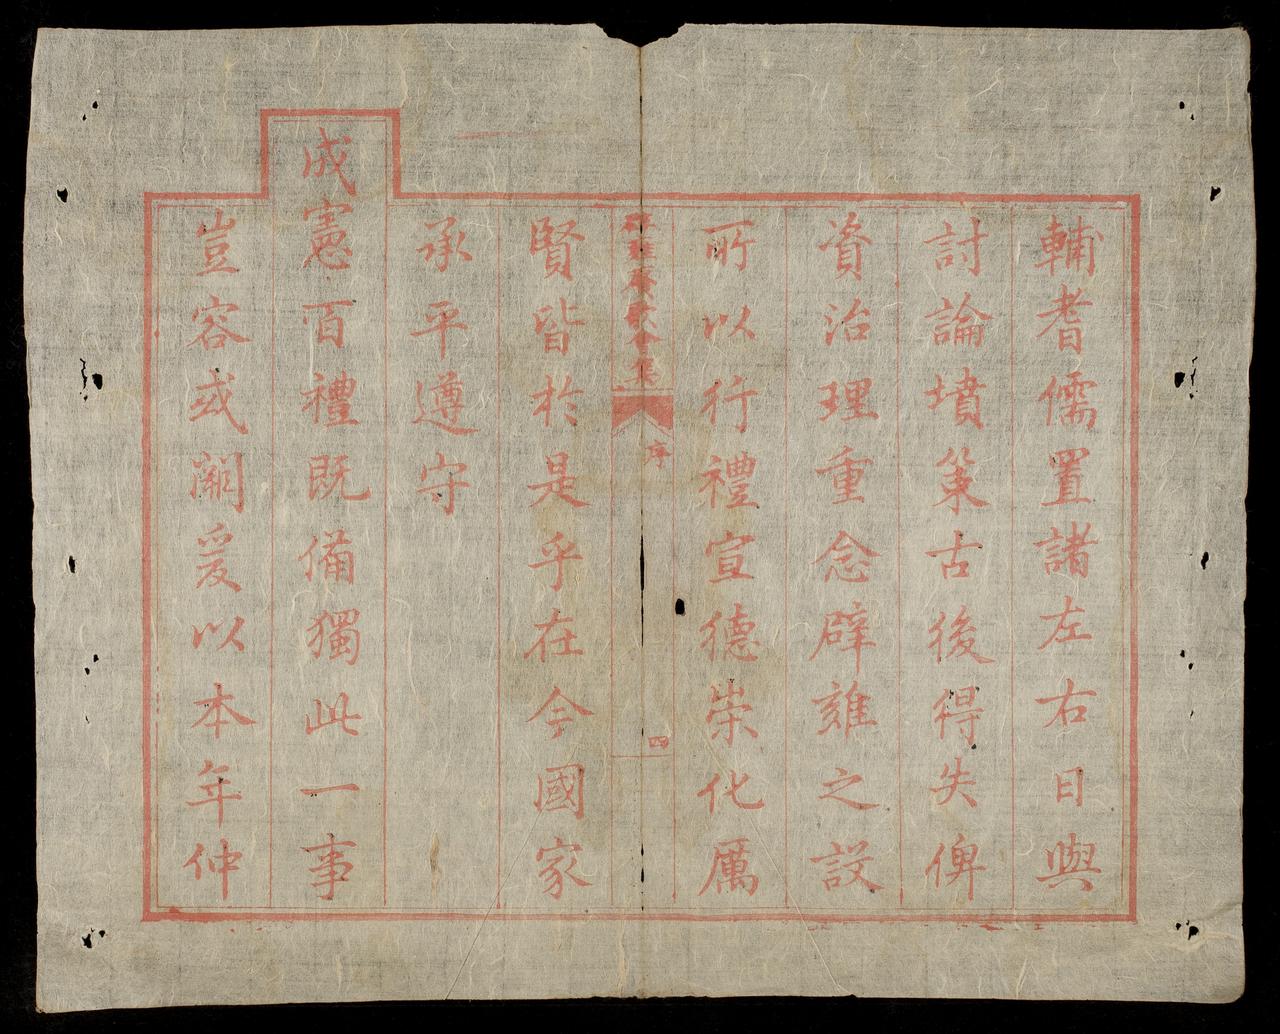 輔耆儒置諸左右日與
討論墳策古後得失俾
資治理重念辟雝之設
所以行禮宣德崇化厲
序
四
賢皆於是乎在今國家
承平遵守
成憲百禮既備獨此一事
豈容或闕爰以本年仲